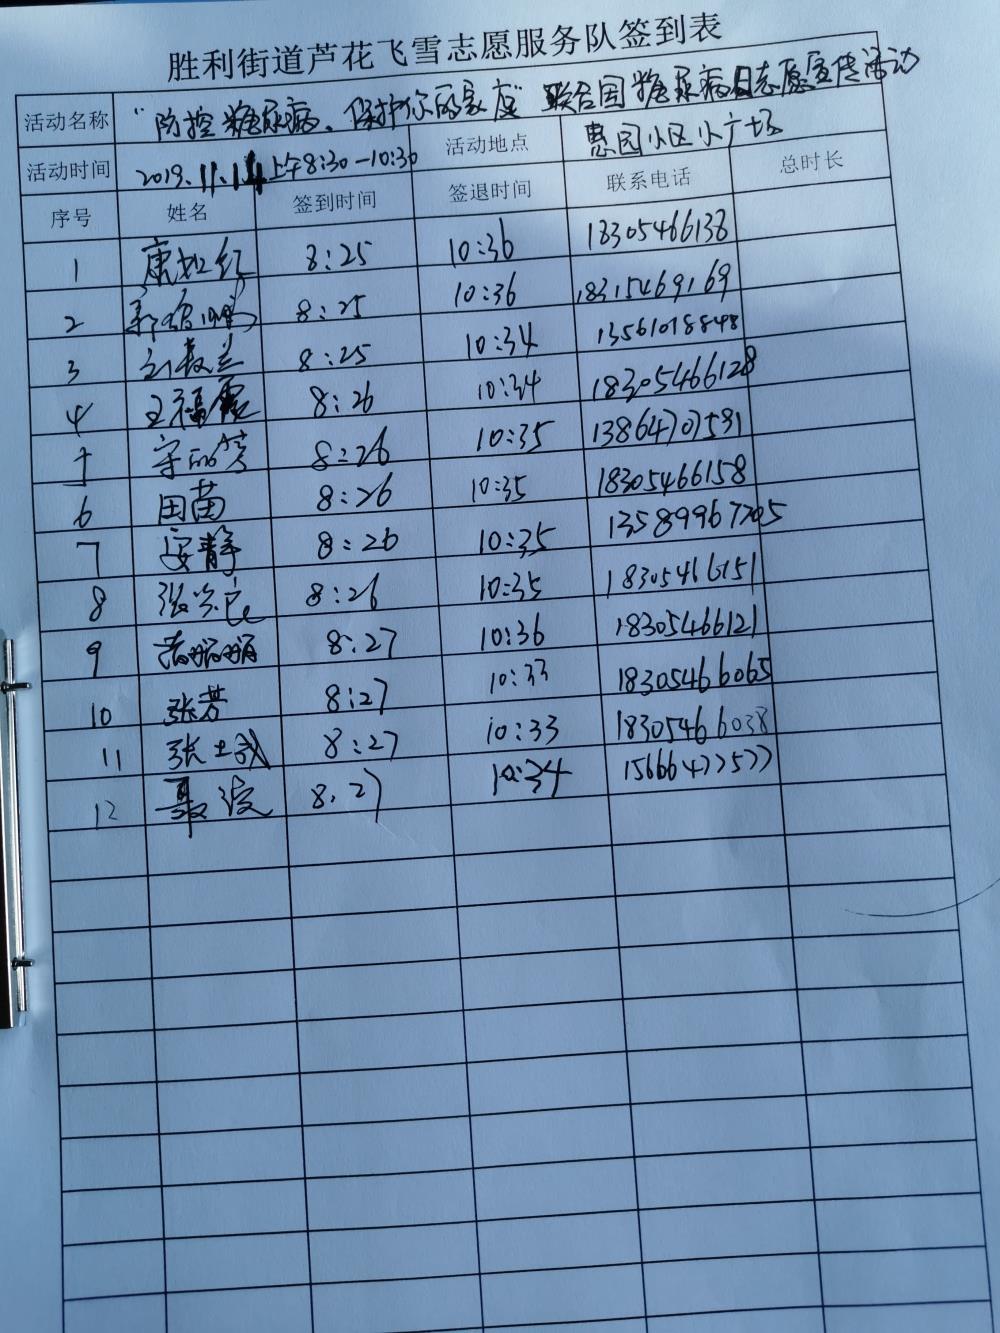 胜利街道芦花飞雪志愿服务队签到表
活动名称 "防控糖尿病、保护你的家庭" 联合国糖尿病日志愿宣传活动
活动时间 2019.11.14上午8:30-10:30 活动地点 惠园小区小广场
序号 姓名 签到时间 签退时间 联系电话 总时长
1 8:25 10:36 18305466138
2 8:25 10:36 18315469169
3 8:25 10:34 13561018848
4 王福霞 8:26 10:34 18305466128
5 8:26 10:35 13864707531
6 田苗 8:26 10:35 18305466158
7 安静 8:26 10:35
8 8:26 10:35 18305466151
9 8:27 10:36 18305466121
10 张芳 8:27 10:33 18305466065
11 张士成 8:27 10:33 18305466038
12 聂波 8:27 10:34 15666477577